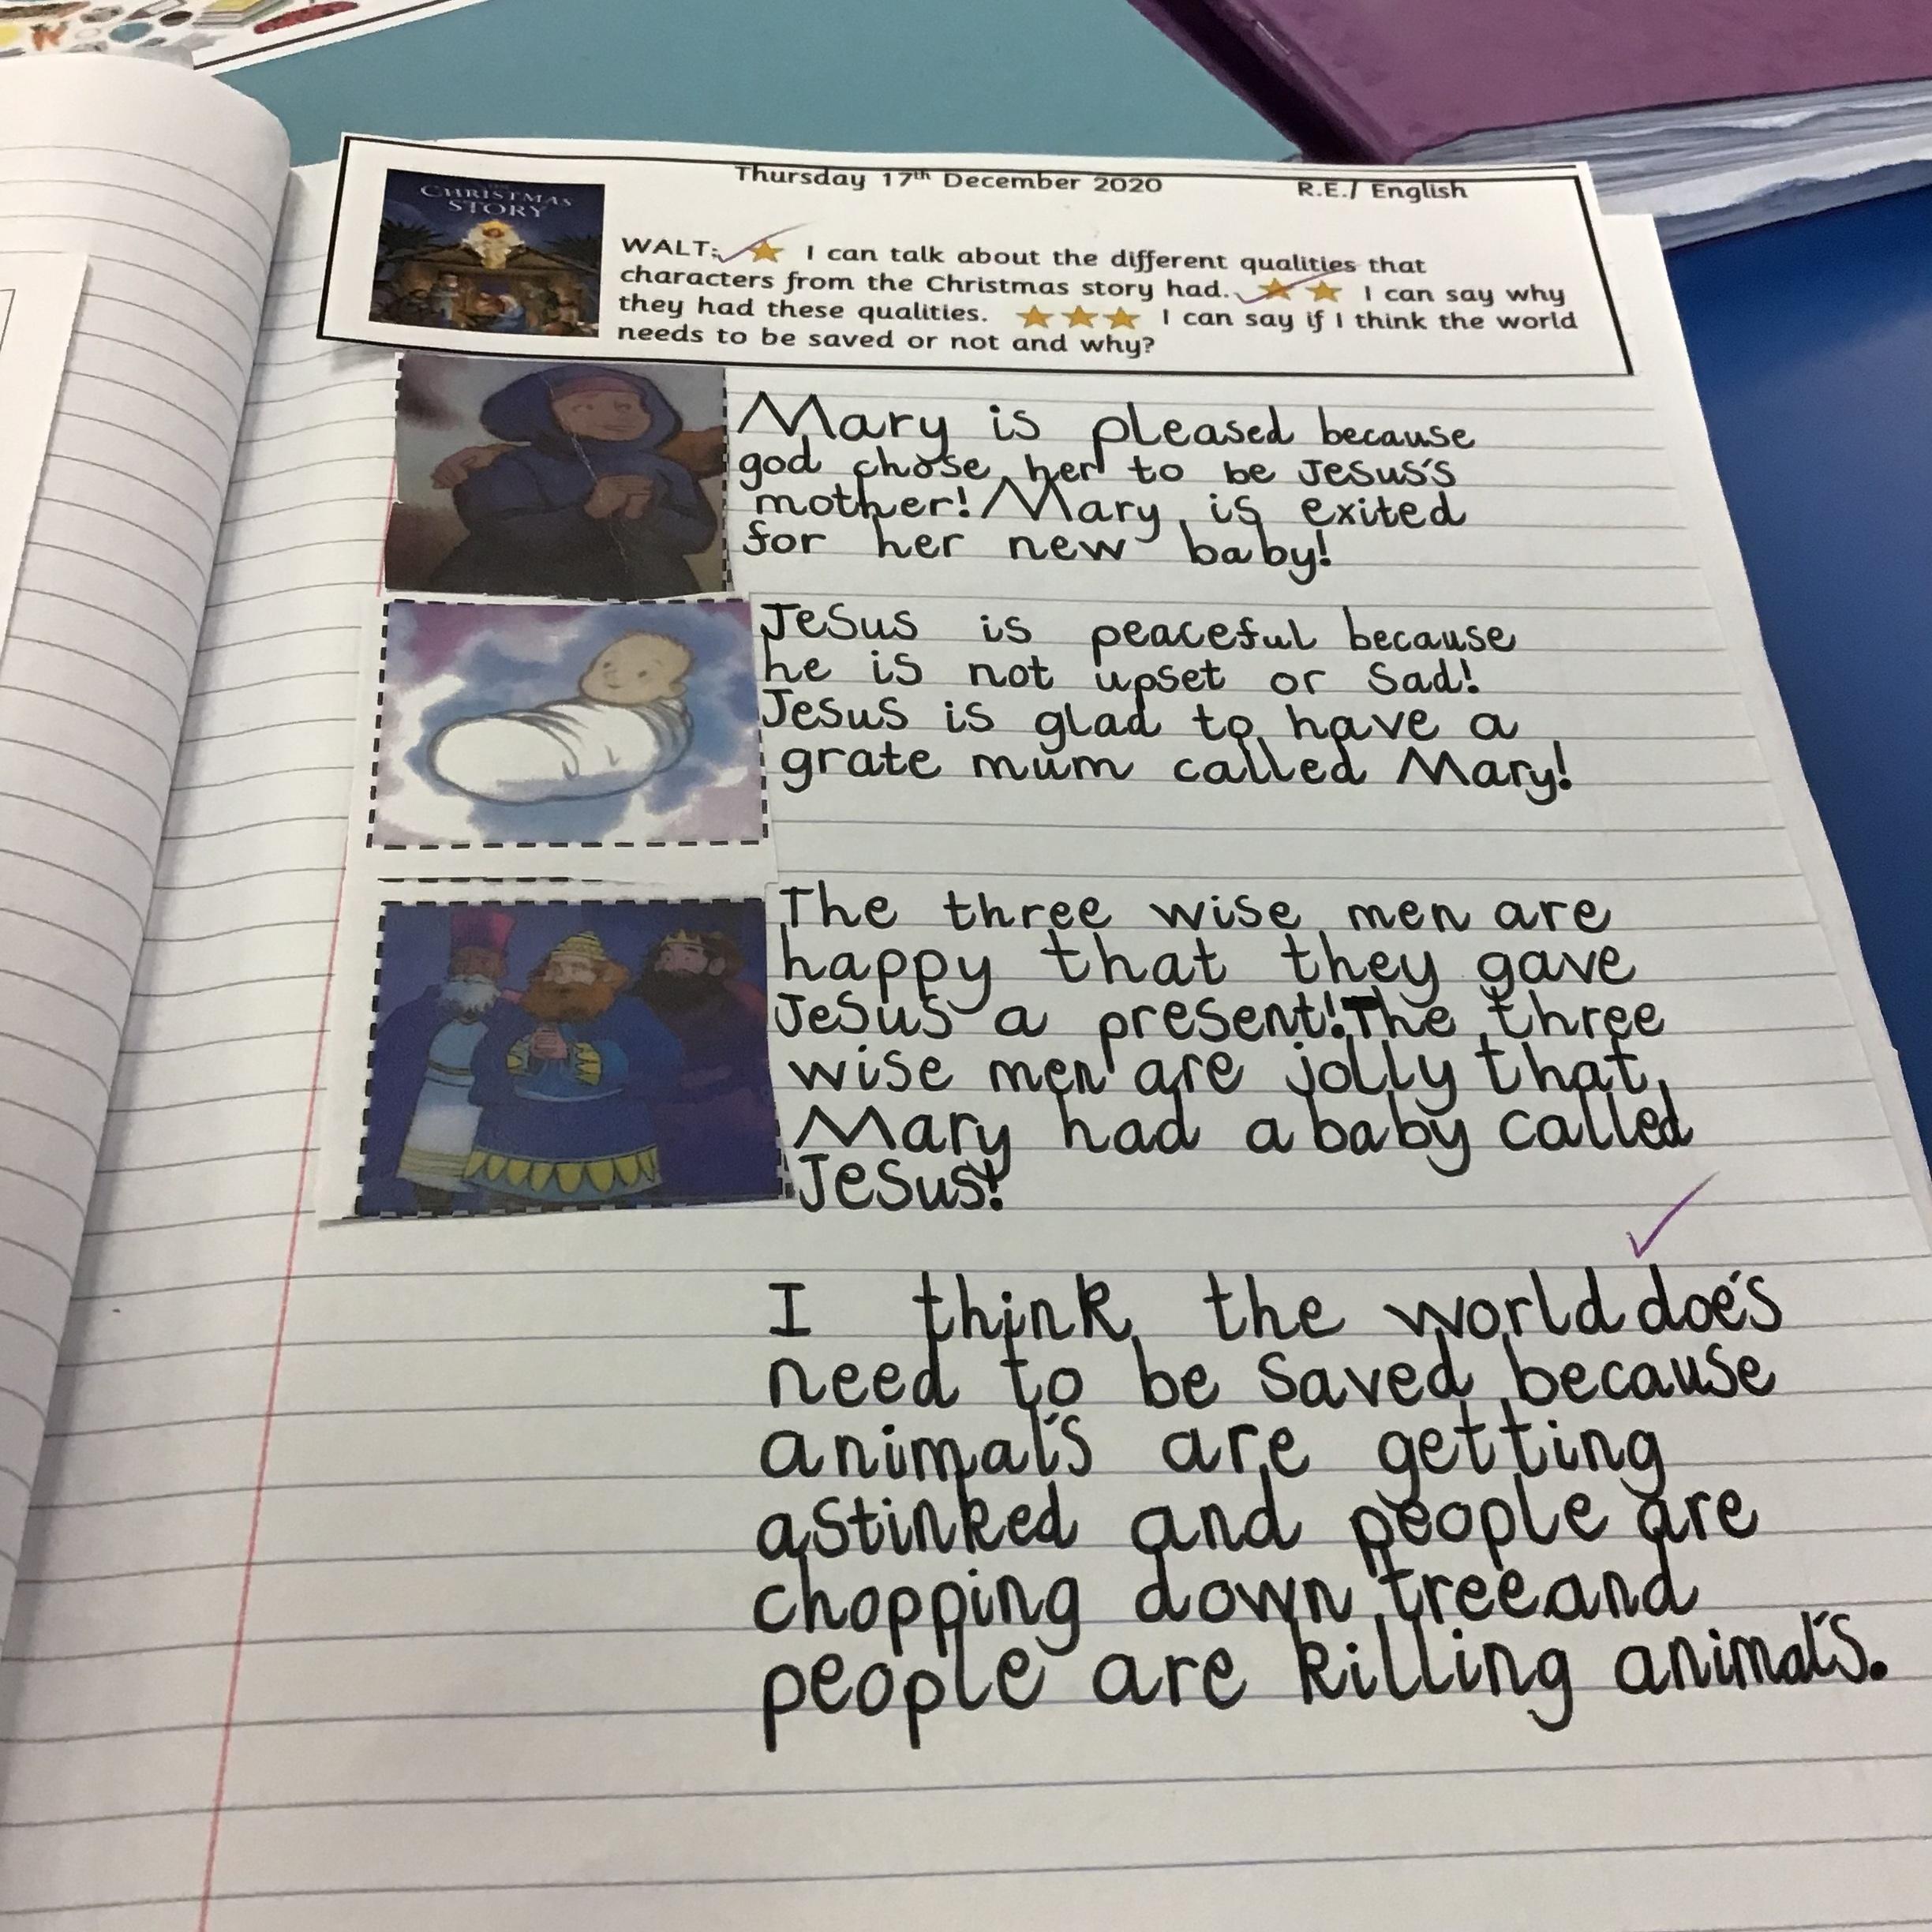 THE
CHRISTMAS
STORY
Thursday 17th December 2020 R.E./ English
WALT: I can talk about the different qualities that
characters from the Christmas story had. I can say why
they had these qualities. I can say if I think the world
needs to be saved or not and why?
Mary is pleased because
god chose her to be Jesus's
mother! Mary is exited
for her new baby!
Jesus is peaceful because
he is not upset or Sad!
Jesus is glad to have a
grate mum called Mary!
The three wise men are
happy that they gave
Jesus a present! The three
wise men are jolly that
Mary had a baby called
Jesus!
I think the world doe's
need to be saved because
animal's are getting
astinked and people are
chopping down tree and
people are killing animal's.